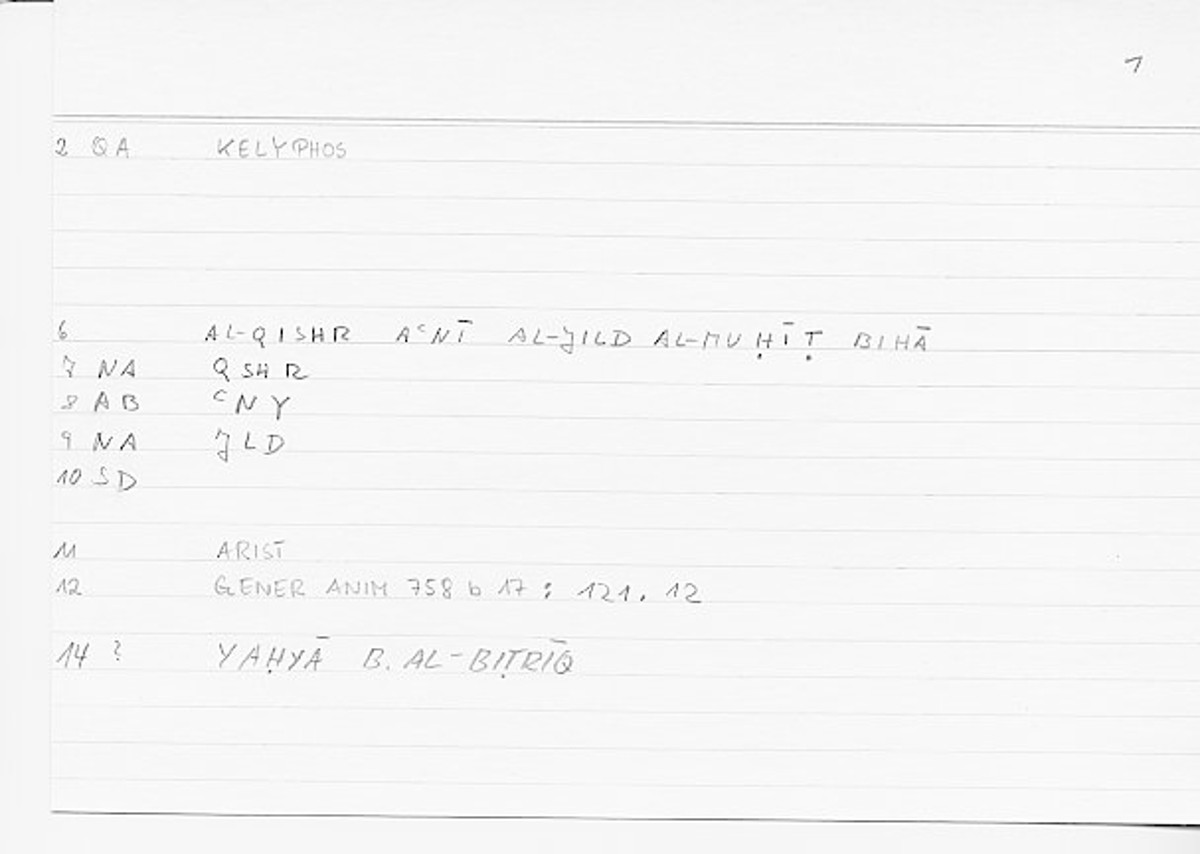 1
2 QA KELYPHOS
6 AL-QISHR AᶜNĪ AL-JILD AL-MUḤĪṬ BIHĀ
7 NA QSHR
8 AB ᶜNY
9 NA JLD
10 SD
11 ARIST
12 GENER ANIM 758 b 17 : 121, 12
14 ? YAḤYĀ B. AL-BIṬRĪQ